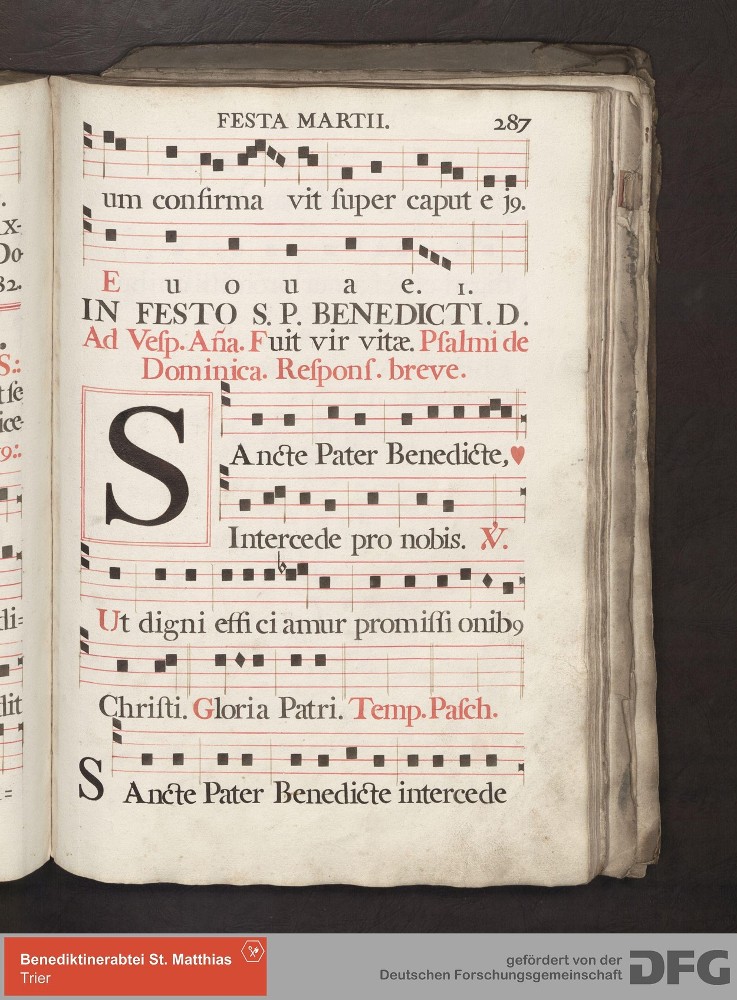 FESTA MARTII. 287
um confirma vit ſuper caput e j9.
E u o u a e. 1.
IN FESTO S. P. BENEDICTI. D.
Ad Veſp. Aña. Fuit vir vitæ. Pſalmi de
Dominica. Reſponſ. breve.
SAncte Pater Benedicte,
Intercede pro nobis. V.
Ut digni effi ci amur promiſſi onib9
Chriſti. Gloria Patri. Temp. Paſch.
SAncte Pater Benedicte intercede
Benediktinerabtei St. Matthias
Trier
gefördert von der
Deutschen Forschungsgemeinschaft
DFG